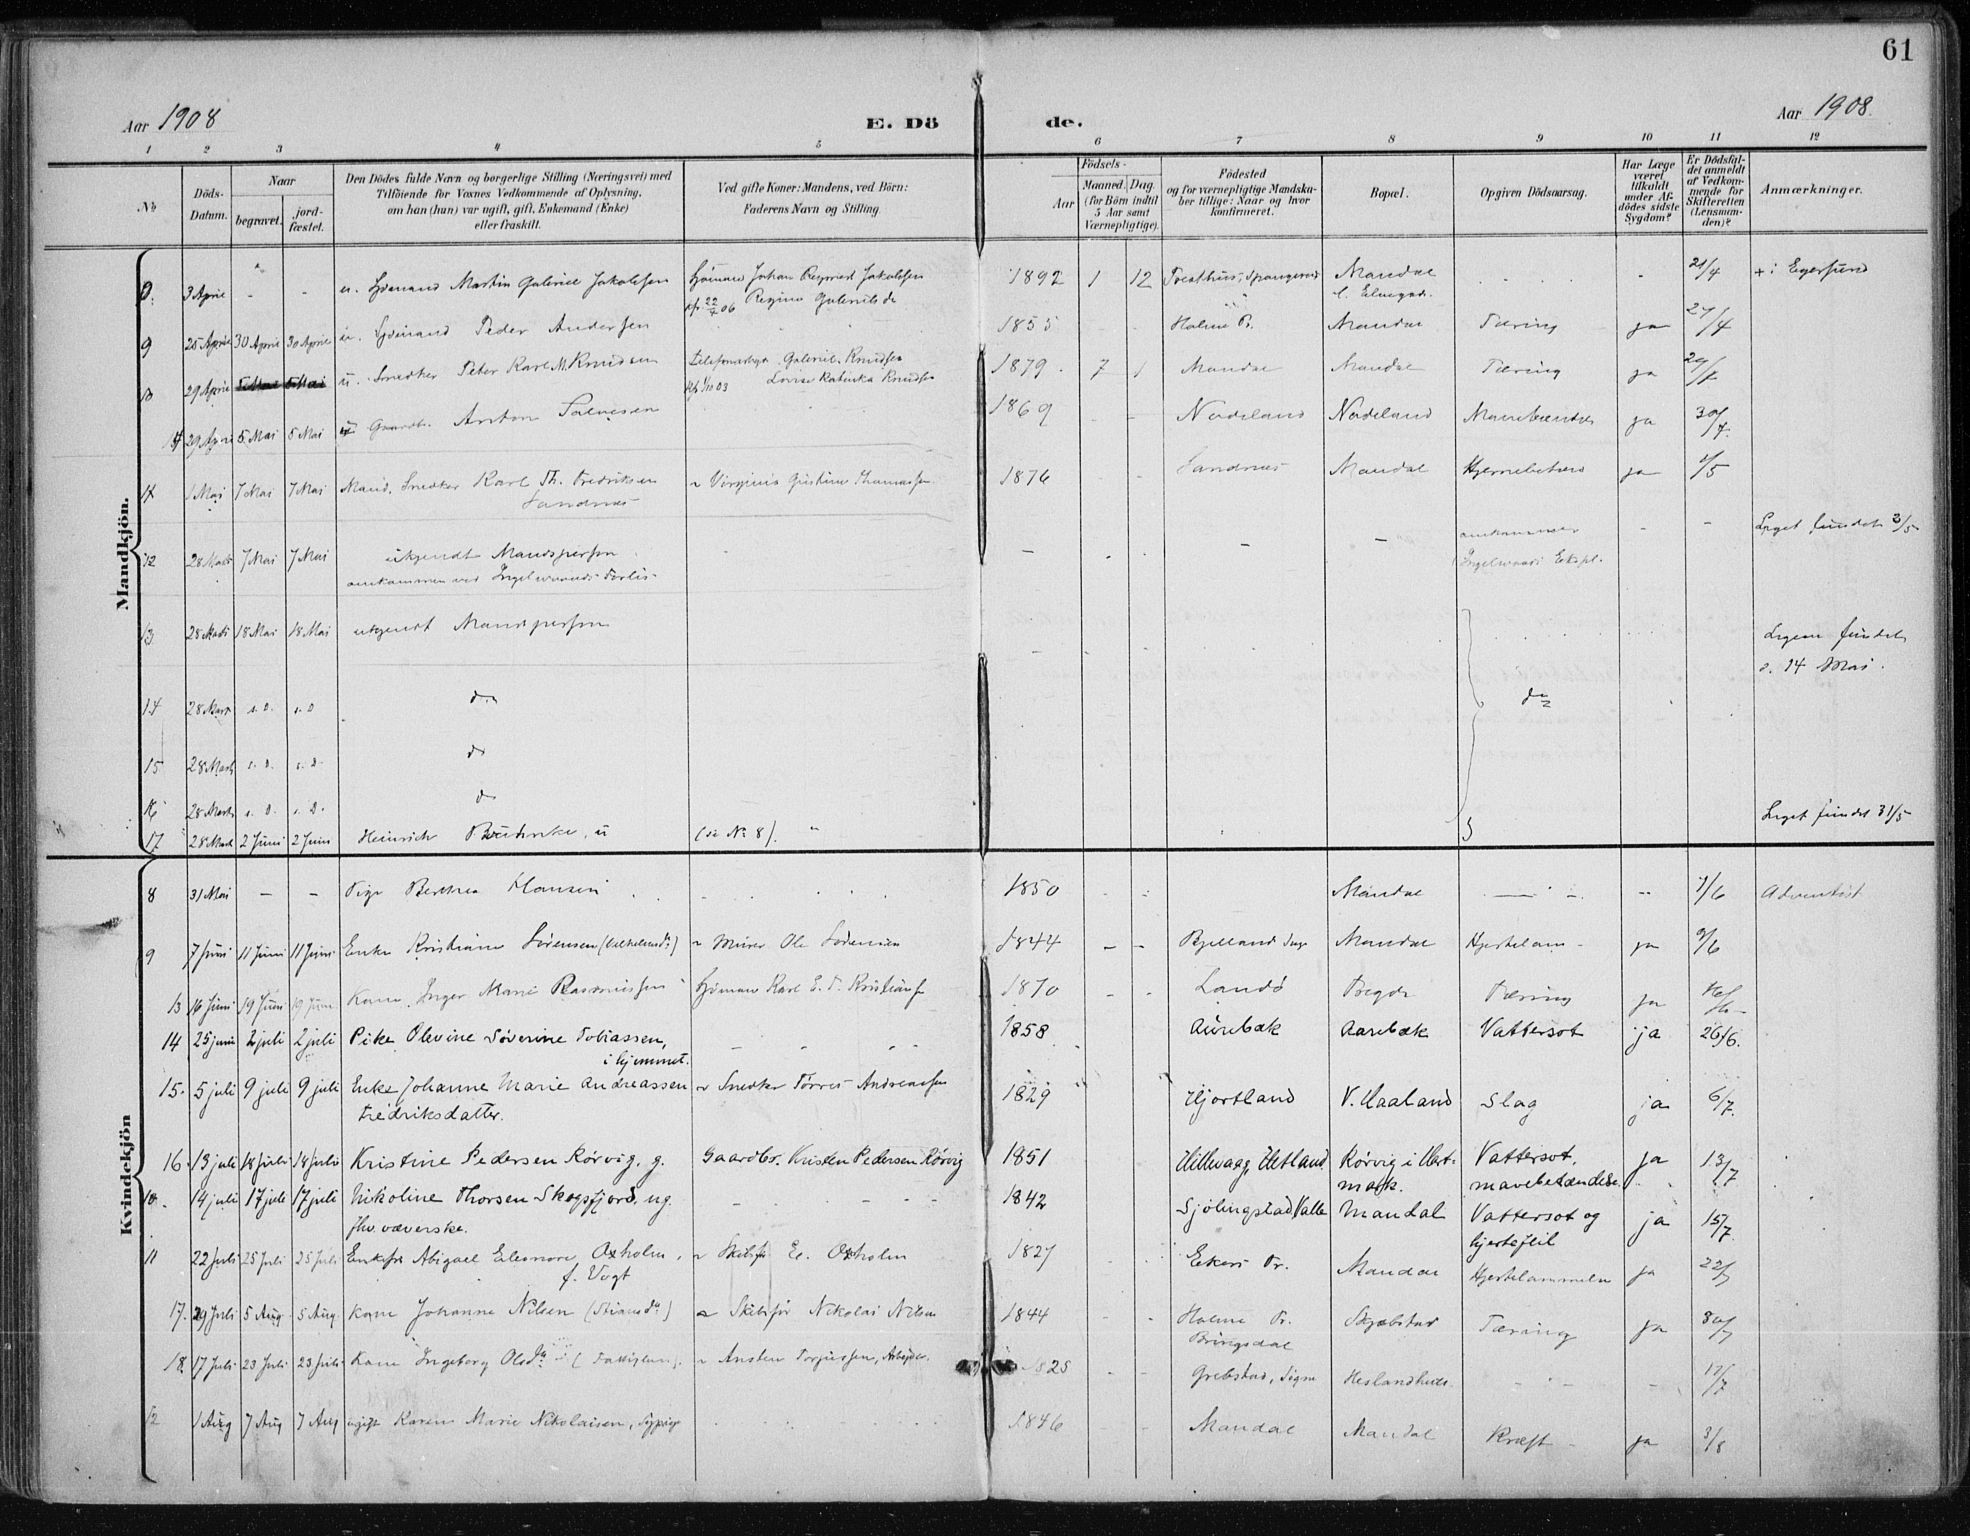 61
Aar 1908
E. Dö
de.
Aar 1908.
1 2 3 4 5 6 7 8 9 10 11 12
No
Döds-Datum.
Naar
begravet.
jord-fæstet.
Den Dödes fulde Navn og borgerlige Stilling (Næringsvei) med
Tilföiende for Voxnes Vedkommende af Oplysning,
om han (hun) var ugift, gift, Enkemand (Enke)
eller fraskilt.
Ved gifte Koner: Mandens, ved Börn:
Faderens Navn og Stilling.
Födsels-
Aar
Maaned. Dag
(for Börn indtil
5 Aar samt
Værnepligtige).
Födested
og for værnepligtige Mandska-
ber tillige: Naar og hvor
konfirmeret.
Bopæl.
Opgiven Dödsaarsag.
Har Læge
været
tilkaldt
under Af-
dödes sidste
Sygdom?
Er Dödsfal-
det anmeldt
af Vedkom-
mende for
Skifteretten
(Lensman-
den)?
Anmærkninger.
Mandkjön.
8. 3 April - - u. Martin Gabriel Jakobsen Johan Jakobsen 1892 1 12 Mandal - 21/4 + i Egersund
9 25 April 30 April 30 April u. Peder Andersen 1855 Holme Pr. Mandal Tæring ja 27/4
10 29 April 5 Mai 5 Mai u. Snedker Peter Karl M. Knudsen Gabriel Knudsen 1879 7 1 Mandal Mandal Tæring ja
Lovise Katinka Knudsen
29 April 5 Mai 5 Mai Anton Salvesen 1869 - - Nodeland Nodeland ja
11 1 Mai 7 Mai 7 Mai Snedker Karl Th. Fredriksen 1876 Sandnes Mandal ja 1/5
Sandnes
12 28 Marts 7 Mai 7 Mai ukjendt Mandsperson - - - - omkommet - - Liget fundet 3/5
omkommen ved Ingelwaards Forlis- Ingelwaards Expl.
13 28 Marts 18 Mai 18 Mai ukjendt Mandsperson Ligene fundet
d. 14 Mai.
14 28 Marts s. D. s. D do do
15 28 Marts s. D. s. D. do
16 28 Marts s. D. s. D. do
17 28 Marts 2 Juni 2 Juni Heinrich u (se No 8). Liget fundet 31/5
Kvindekjön
8 31 Mai - - Pige Berthea Hansen 1850 Mandal 1/6 Adventist
9 7 Juni 11 Juni 11 Juni Enke Kristiane Sörensen ~ Murer Ole Sörensen 1844 - - Bjelland Mandal Hjertelam- ja 9/6
13 16 Juni 19 Juni 19 Juni Kone Inger Marie Rasmussen Karl 1870 - - Landö Tregde Tæring ja
14 25 juni 2 juli 2 juli Pike Olevine Söverine Tobiassen, 1858 Aurebæk Aurebæk Vattersot ja 26/6.
i hjemmet.
15. 5 juli 9 juli 9 juli Enke Johanne Marie Andreassen ~ Snedker Törres Andreassen 1829 Hjortland V. Haaland Slag ja 6/7.
Fredriksdatter.
16. 13 juli 18 juli 18 juli Kristine Pedersen Rörvig, g. Gaardbr. Kristen Pedersen Rörvig 1851 Hillevaag, Hetland Rörvig i Hart- Vattersot, ja 13/7
mark. mavebetændelse.
10. 14 juli 17 juli 17 juli Nikoline Thorsen Skogsfjord, ug. 1842 Sjölingstad, Valle Mandal Vattersot og ja 15/7
fhv. væverske. hjertefeil
11 22 Juli 25 Juli 25 Juli Enkefru Abigael Eleonore Oxholm, ~ Skibsf. Oxholm 1827 Ekers Pr. Mandal Hjertelammelse ja 22/7
f. Vogt
17. 29 Juli 5 Aug. 5 Aug. Kone Johanne Nilsen ~ Skibsför. Nikolai Nilsen 1844 Holme Pr. Skjebstad Tæring ja 30/7
Bringsdal
18. 17 Juli 23 Juli 23 Juli Kone Ingeborg Olsdtr. ~ Ansten Torjussen, Arbejder. 1825 Grebstad, Sögne 17/7
12 1 Aug 7 Aug 7 Aug ugift Karen Marie Nikolaisen, Sypige 1846 Mandal Mandal Kræft ja 3/8